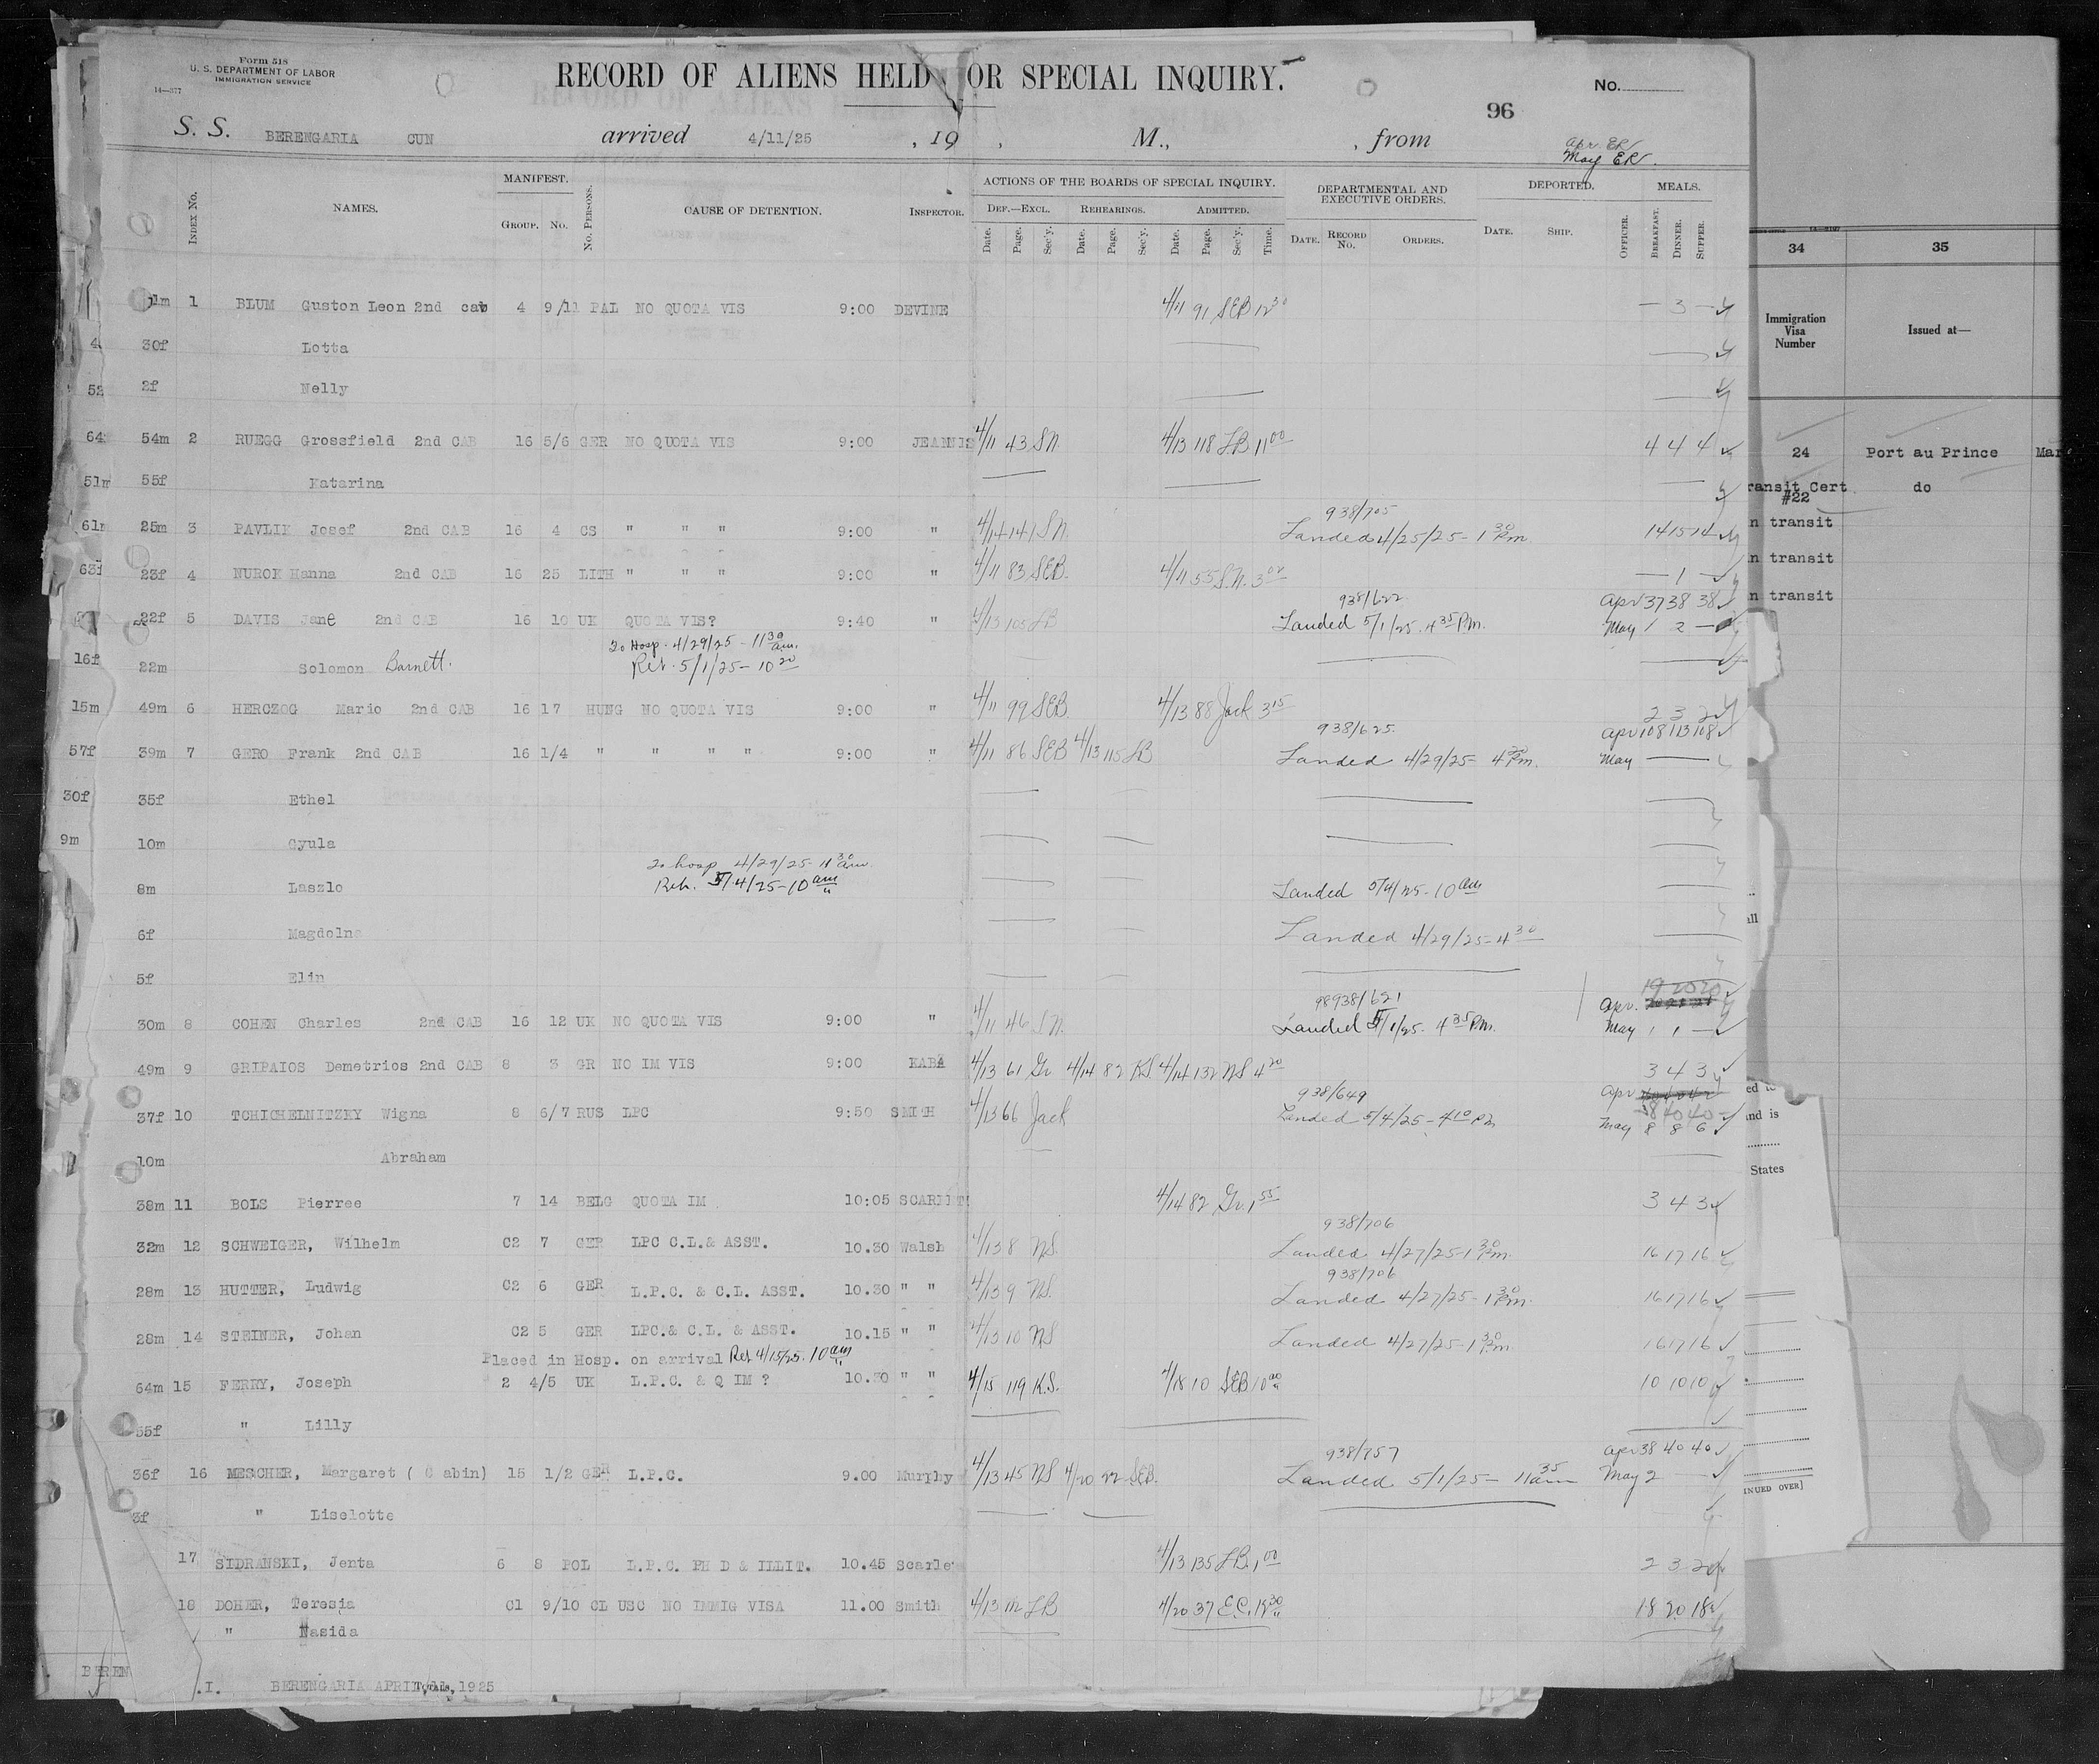 Form 518
U. S. DEPARTMENT OF LABOR
IMMIGRATION SERVICE
14—577
RECORD OF ALIENS HELD OR SPECIAL INQUIRY.
No.
96
S. S. BERENGARIA CUN arrived 4/11/25 , 19 , M., , from
Apr ER
May ER.
INDEX No. NAMES. MANIFEST. GROUP. No. No. PERSONS. CAUSE OF DETENTION. INSPECTOR. ACTIONS OF THE BOARDS OF SPECIAL INQUIRY. DEPARTMENTAL AND EXECUTIVE ORDERS. DEPORTED. MEALS.
DEF.—EXCL. REHEARINGS. ADMITTED.
Date. Page. Sec'y. Date. Page. Sec'y. Date. Page. Sec'y. Time. DATE. RECORD No. ORDERS. DATE. SHIP. OFFICER. BREAKFAST. DINNER. SUPPER.
1m 1 BLUM Guston Leon 2nd cab 4 9/11 PAL NO QUOTA VIS 9:00 DEVINE 4/11 91 SEB 12 30 — 3 —
30f Lotta
2f Nelly
54m 2 RUEGG Grossfield 2nd CAB 16 5/6 GER NO QUOTA VIS 9:00 JEANNIS 4/11 43 SN. 4/13 118 LB 11 00 4 4 4
55f Katarina
938/705
25m 3 PAVLIK Josef 2nd CAB 16 4 CS " " " 9:00 " 4/14 141 SN. Landed 4/25/25 - 1 30 Pm. 14 15 14
23f 4 NUROK Hanna 2nd CAB 16 25 LITH " " " 9:00 " 4/11 83 SEB. 4/11 55 S.N. 3 00 — 1 —
938/622 Apr 37 38 38
22f 5 DAVIS Jane 2nd CAB 16 10 UK QUOTA VIS? 9:40 " 4/13 105 LB Landed 5/1/25. 4 35 P.M. May 1 2 —
To Hosp. 4/29/25 - 11 30 am.
22m Solomon Barnett. Ret. 5/1/25 - 10 20
49m 6 HERCZOG Mario 2nd CAB 16 17 HUNG NO QUOTA VIS 9:00 " 4/11 99 SEB. 4/13 88 Jack 3 15 2 3 2
938/625. Apr 108 113 108
39m 7 GERO Frank 2nd CAB 16 1/4 " " " " 9:00 " 4/11 86 SEB 4/13 115 LB Landed 4/29/25 - 4 30 Pm. May
35f Ethel
10m Gyula
To hosp 4/29/25 - 11 30 am.
8m Laszlo Ret. 5/4/25 - 10 am Landed 5/4/25 - 10 am
6f Magdolna Landed 4/29/25 - 4 30
5f Elin
98938/621 Apr. 19 20 20
30m 8 COHEN Charles 2nd CAB 16 12 UK NO QUOTA VIS 9:00 " 4/11 46 SN. Landed 5/1/25. 4 35 P.M. May 1 1 —
49m 9 GRIPAIOS Demetrios 2nd CAB 8 3 GR NO IM VIS 9:00 KABA 4/13 61 Gr 4/14 82 KS 4/14 132 NS 4 20 3 4 3
938/649 Apr 38 40 40
37f 10 TCHICHELNITZKY Wigna 8 6/7 RUS LPC 9:50 SMITH 4/13 66 Jack Landed 5/4/25 - 4 10 PM May 8 8 6
10m Abraham
38m 11 BOLS Pierree 7 14 BELG QUOTA IM 10:05 SCARLET 4/14 82 Gr. 1 55 3 4 3
938/706
32m 12 SCHWEIGER, Wilhelm C2 7 GER LPC C.L. & ASST. 10.30 Walsh 4/13 8 NS. Landed 4/27/25 - 1 30 Pm. 16 17 16
938/706
28m 13 HUTTER, Ludwig C2 6 GER L.P.C. & C.L. ASST. 10.30 " " 4/13 9 NS. Landed 4/27/25 - 1 30 Pm. 16 17 16
28m 14 STEINER, Johan C2 5 GER LPC.& C.L. & ASST. 10.15 " " 4/13 10 NS Landed 4/27/25 - 1 30 Pm. 16 17 16
Placed in Hosp. on arrival Ret 4/15/25. 10 am
64m 15 FERRY, Joseph 2 4/5 UK L.P.C. & Q IM ? 10.30 " " 4/15 119 K.S. 4/18 10 SEB 10 00 10 10 10
55f " Lilly
938/757 Apr 38 40 40
36f 16 MESCHER, Margaret ( Cabin) 15 1/2 GER L.P.C. 9.00 Murphy 4/13 45 NS 4/20 22 SEB. Landed 5/1/25 - 11 35 am May 2
3f " Liselotte
17 SIDRANSKI, Jenta 6 8 POL L.P.C. PH D & ILLIT. 10.45 Scarle 4/13 135 LB. 1 00 2 3 2
18 DOHER, Teresia C1 9/10 CL USC NO IMMIG VISA 11.00 Smith 4/13 112 LB 4/20 37 E.C. 12 30 18 20 18
" Nasida
BEREN .I. BERENGARIA APRIL 11, 1925
64
51m
61m
63f
16f
15m
57f
30f
9m
34 35
Immigration Visa Number Issued at—
24 Port au Prince Mar
ransit Cert do
#22
n transit
n transit
n transit
all
ed to
and is
States
INUED OVER]